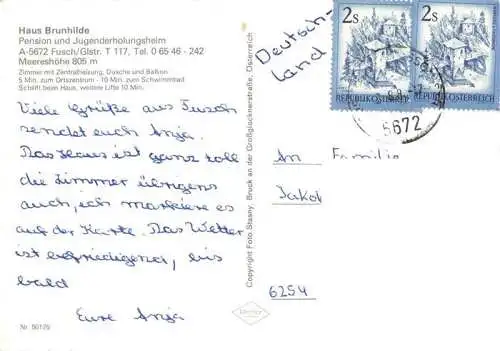 Haus Brunhilde
Pension und Jugenderholungsheim
A-5672 Fusch/Glstr. T 117, Tel. 0 65 46 - 242
Meereshöhe 805 m
Zimmer mit Zentralheizung, Dusche und Balkon
5 Min. zum Ortszentrum - 10 Min. zum Schwimmbad
Schilift beim Haus, weitere Lifte 10 Min.
Viele Grüße aus Fusch
sendet euch Anja.
Das Haus ist ganz toll
die Zimmer übrigens
auch, ich markiere es
auf der Karte. Das Wetter
ist befriedigend, bis
bald
Eure Anja
Nr. 50125
Copyright Foto Stasny, Bruck an der Großglocknerstraße, Österreich
Deutsch-
land
2s
REPUBLIK ÖSTERREICH
2s
REPUBLIK ÖSTERREICH
5672
An Familie
Jakob
6254